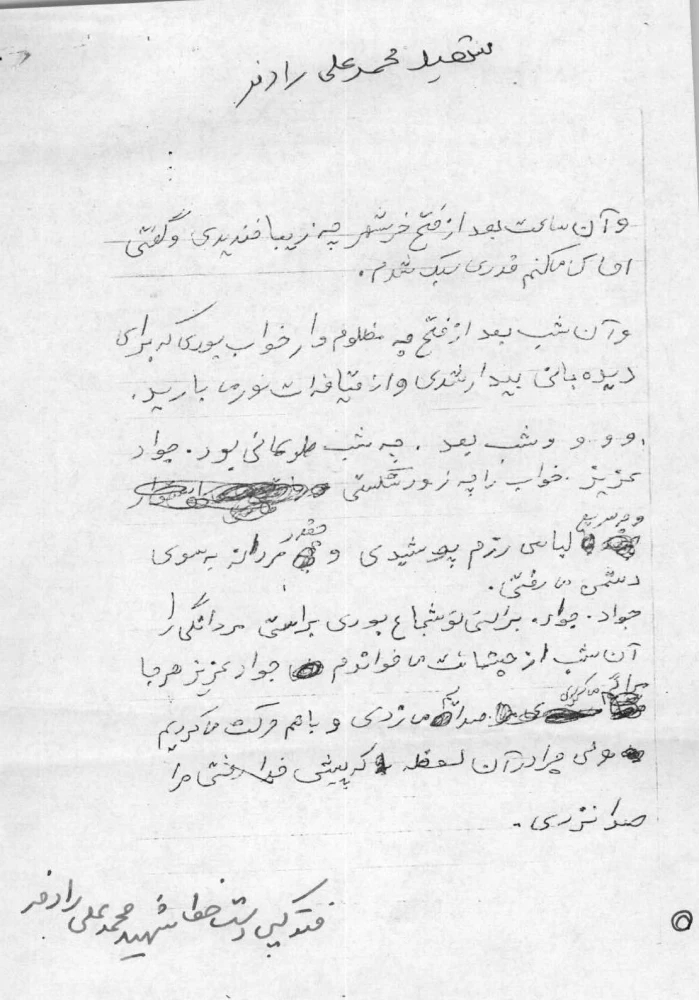 شهید محمد علی رادفر
و آن ساعت بعد از فتح خرمشهر چه زیبا خندیدی و گفتی
احساس میکنم قدری سبک شدم.
و آن شب بعد از فتح چه مظلوم وار خواب بودی که برای
دیده بانی بیدار شدی و از قیافه ات نور می بارید.
و و و و شب بعد. چه شب طوفانی بود. جواد
عزیز. خواب را چه زود شکستی
و چه سریع
لباس رزم پوشیدی و چقدر مردانه به سوی
دشمن می رفتی.
جواد. جواد. براستی تو شجاع بودی براستی مردانگی را
آن شب از چشمانت می خواندم جواد عزیز هر جا
صدایم می زدی و با هم حرکت می کردیم
ولی چرا در آن لحظه که پیش خدا رفتی مرا
صدا نزدی.
فتوکپی دستخط شهید محمد علی رادفر